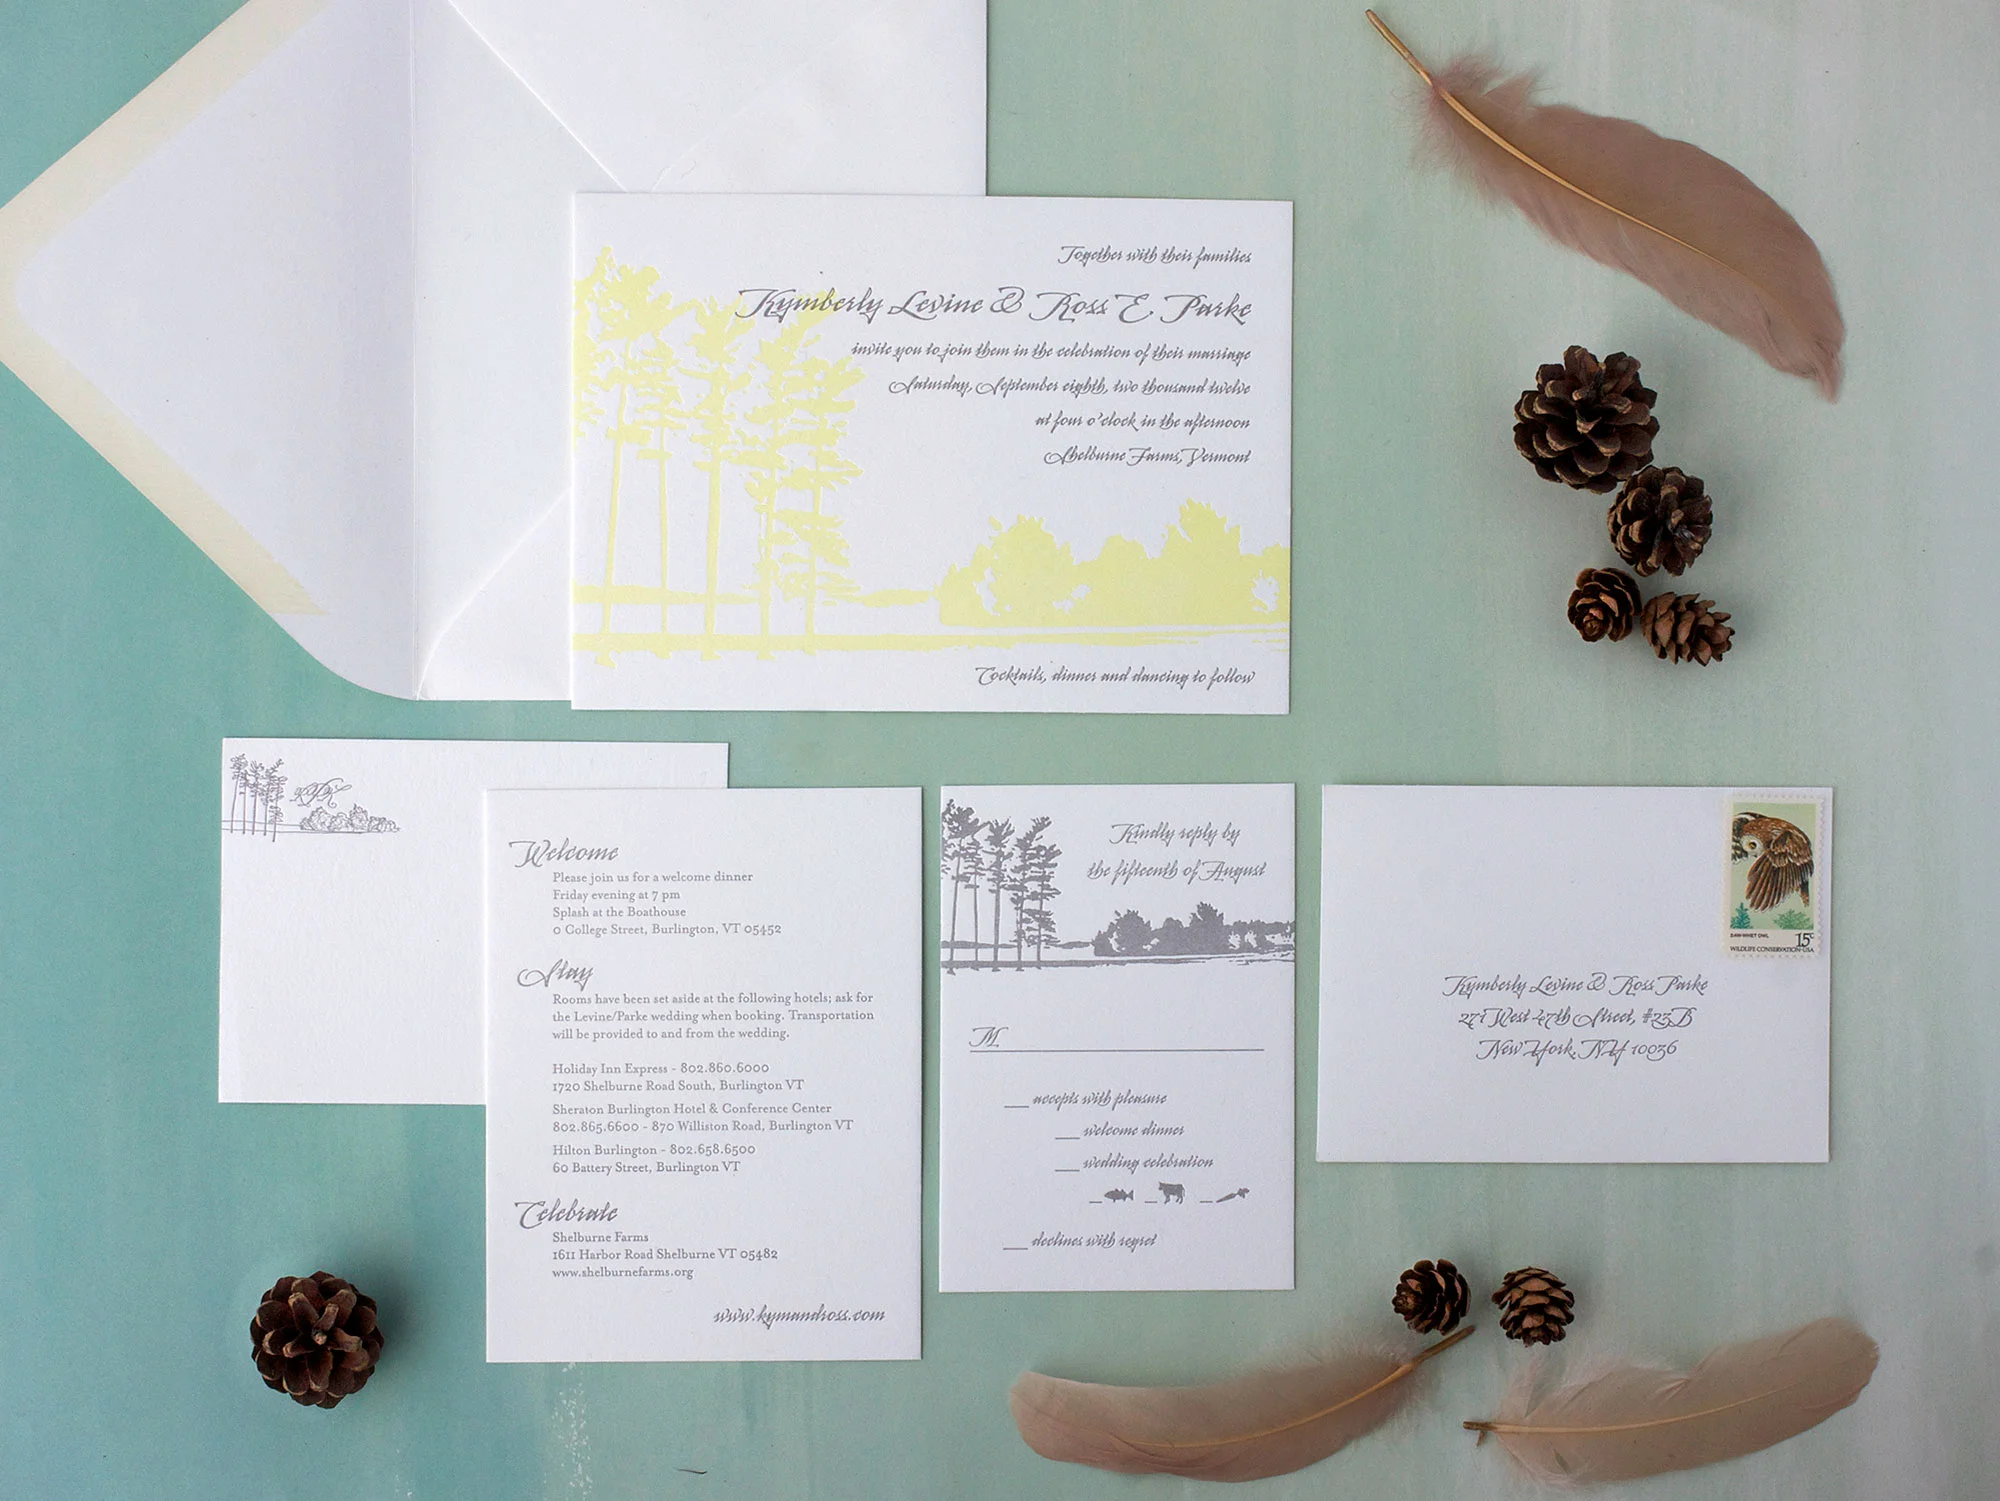 Together with their families
Kymberly Levine & Ross E. Parke
invite you to join them in the celebration of their marriage
Saturday, September eighth, two thousand twelve
at four o'clock in the afternoon
Shelburne Farms, Vermont
Cocktails, dinner and dancing to follow
Welcome
Please join us for a welcome dinner
Friday evening at 7 pm
Splash at the Boathouse
0 College Street, Burlington, VT 05452
Stay
Rooms have been set aside at the following hotels; ask for
the Levine/Parke wedding when booking. Transportation
will be provided to and from the wedding.
Holiday Inn Express - 802.860.6000
1720 Shelburne Road South, Burlington VT
Sheraton Burlington Hotel & Conference Center
802.865.6600 - 870 Williston Road, Burlington VT
Hilton Burlington - 802.658.6500
60 Battery Street, Burlington VT
Celebrate
Shelburne Farms
1611 Harbor Road Shelburne VT 05482
www.shelburnefarms.org
www.kymandross.com
Kindly reply by
the fifteenth of August
M
accepts with pleasure
welcome dinner
wedding celebration
declines with regret
SAW-WHET OWL
15c
WILDLIFE CONSERVATION·USA
Kymberly Levine & Ross Parke
271 West 47th Street, #23B
New York, NY 10036